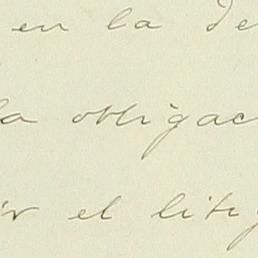 en la de
la obligac
ir el litig